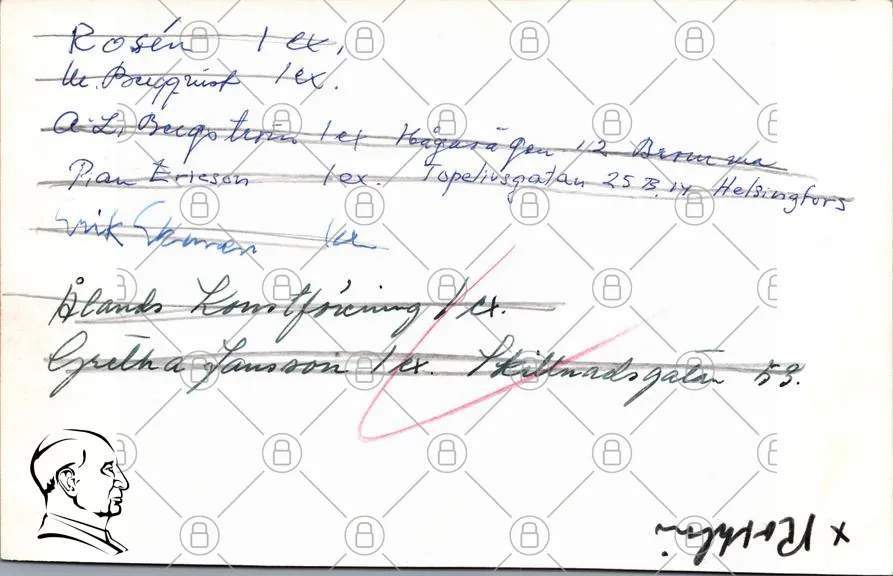 Rosén 1 ex.
M. Bergqvist 1 ex.
A.L. Bergström 1 ex Hågavägen 12 Bromma
Pian Ericson 1 ex. Topeliusgatan 25 B.14 Helsingfors
Erik 1 ex
Ålands Konstförening 1 ex.
Gretha Jansson 1 ex. Skillnadsgatan 53.
x